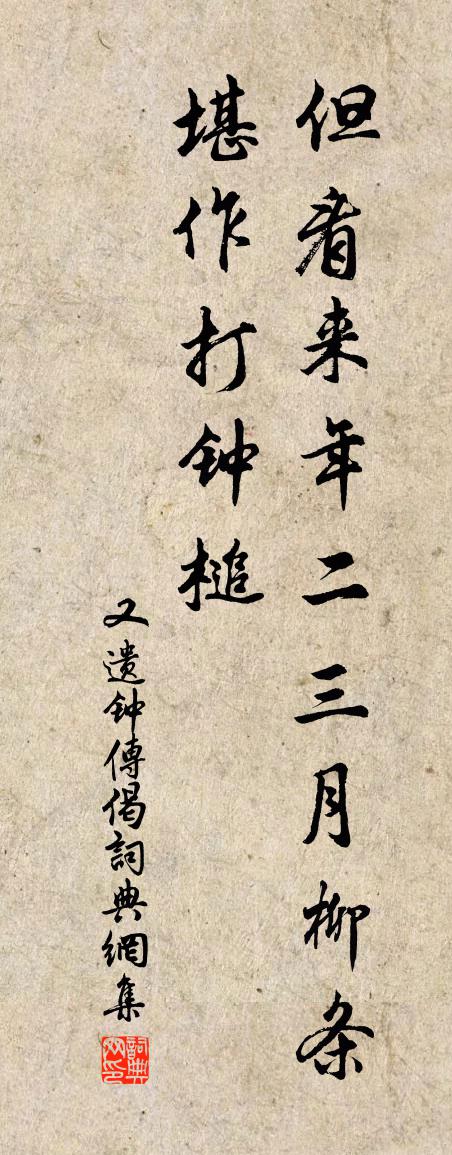 但看来年二三月柳条
堪作打钟槌
又遗钟傅偈詞典網集
詞典网印